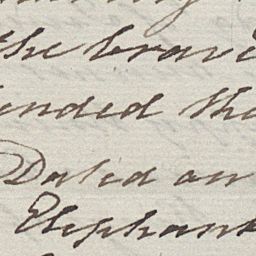 the brave
ended the
Dated on
Elephant